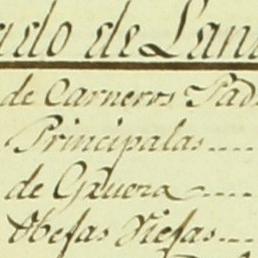 ado de Lana
de Carneros Pad
Principalas....
de Gruera ....
Obejas Viejas....